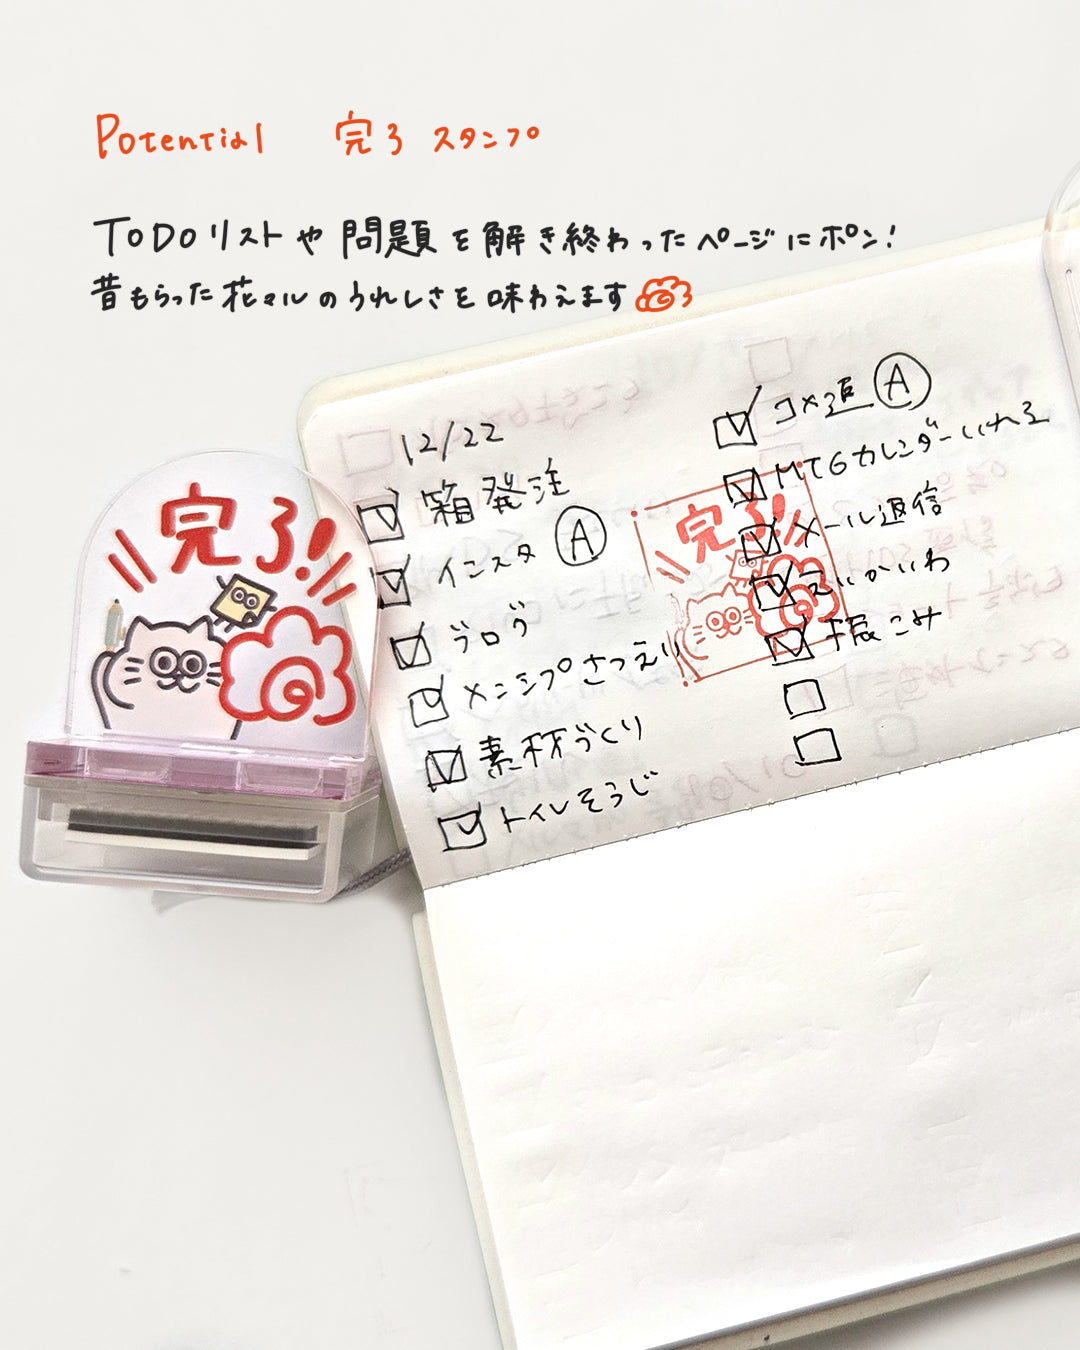 Potential 完了スタンプ
ToDoリストや問題を解き終わったページにポン!
昔もらった花マルのうれしさを味わえます
完了!
12/22
箱発注
インスタ A
ブログ
メンシプさつえい
素材づくり
トイレそうじ
コメ返 A
MTGカレンダーいれる
メール返信
振こみ
完了!